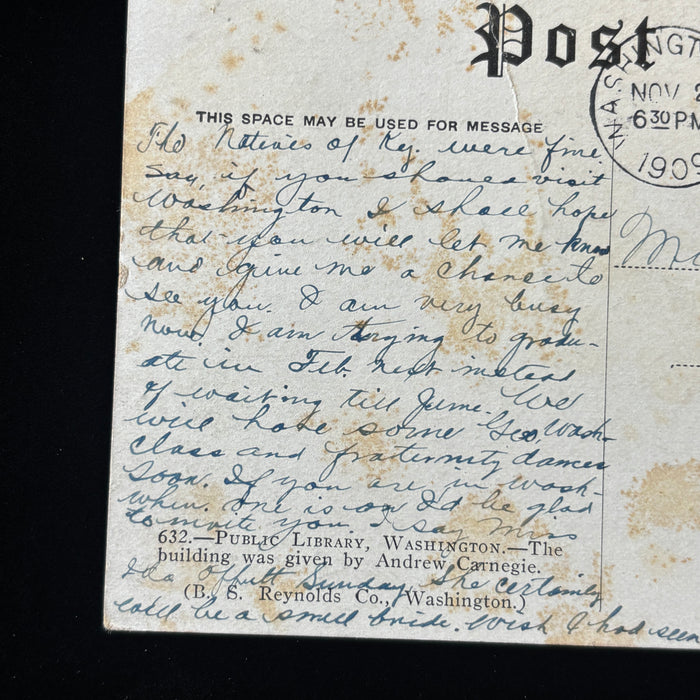 Post
WASHINGTON
NOV 2
6 30 PM
1909
THIS SPACE MAY BE USED FOR MESSAGE
The Natives of Ky. were fine.
Say, if you should visit
Washington I shall hope
that you will let me know
and give me a chance to
see you. I am very busy
now. I am trying to gradu-
ate in Feb. next instead
of waiting till June. We
will have some Geo. Wash-
class and fraternity dances
soon. If you are in Wash-
when one is on I'd be glad
to invite you. I say Miss
632.—PUBLIC LIBRARY, WASHINGTON.—The
building was given by Andrew Carnegie.
Ida Offutt Sunday. She certainly
(B. S. Reynolds Co., Washington.)
will be a small bride. Wish I had seen